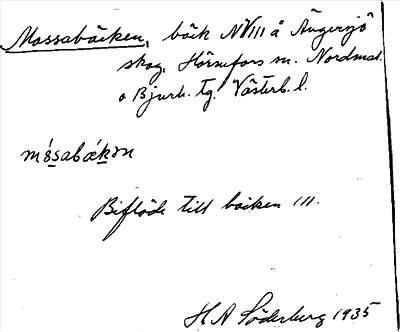 Mossabäcken, bäck N VIII å Ängersjö
skog, Hörnefors sn. Nordmal.
o Bjurh. tg. Västerb. l.
mósabǽkɔn
Biflöde till bäcken 111.
H A Söderberg 1935